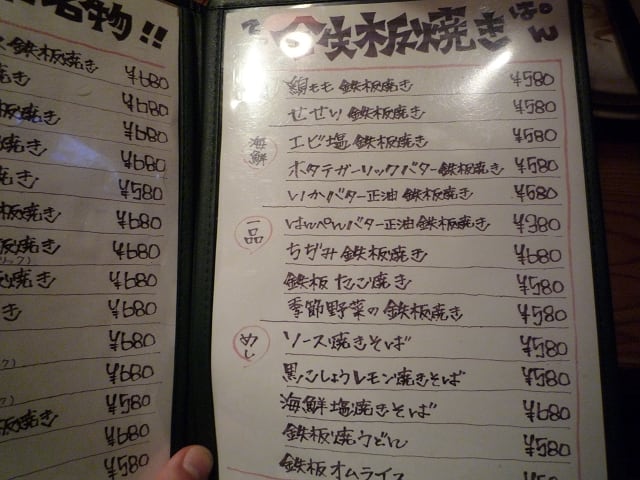 名物!!
鉄板焼き ¥680
焼き ¥680
板焼き ¥680
焼き ¥680
焼き ¥580
板焼き ¥680
板焼き ¥680
焼き ¥680
き ¥680
¥680
¥680
¥580
板焼き ¥680
¥580
てっぱん
鉄板焼き
鶏もも 鉄板焼き ¥580
せせり 鉄板焼き ¥580
海鮮
エビ塩 鉄板焼き ¥580
ホタテガーリックバター鉄板焼き ¥580
いかバター正油 鉄板焼き ¥580
一品
はんぺんバター正油 鉄板焼き ¥380
ちぢみ 鉄板焼き ¥680
鉄板 たこ焼き ¥580
季節野菜の鉄板焼き ¥580
めし
ソース焼きそば ¥580
黒こしょうレモン焼きそば ¥580
海鮮塩焼きそば ¥680
鉄板焼うどん ¥580
鉄板オムライス